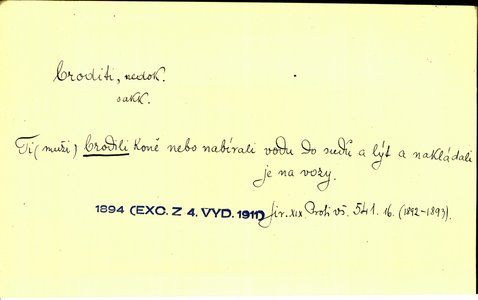 Broditi, nedok.
sakk.
Ti (muži) brodili koně nebo nabírali vodu do sudů a lýt a nakládali
je na vozy.
1894 (EXC. Z 4. VYD. 1911) Jir. XIX Proti vš. 541. 16. (1892–1893).